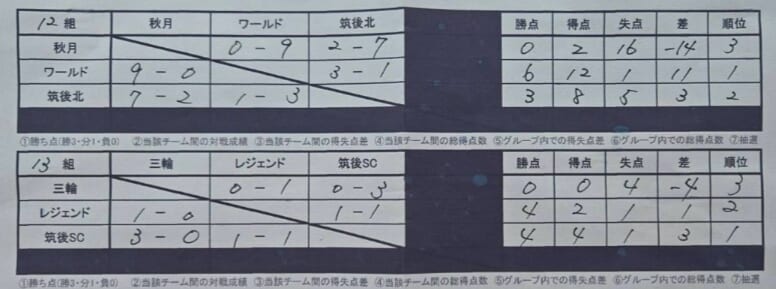 12組 秋月 ワールド 筑後北 勝点 得点 失点 差 順位
秋月 0-9 2-7 0 2 16 -14 3
ワールド 9-0 3-1 6 12 1 11 1
筑後北 7-2 1-3 3 8 5 3 2
①勝ち点(勝3・分1・負0) ②当該チーム間の対戦成績 ③当該チーム間の得失点差 ④当該チーム間の総得点数 ⑤グループ内での得失点差 ⑥グループ内での総得点数 ⑦抽選
13組 三輪 レジェンド 筑後SC 勝点 得点 失点 差 順位
三輪 0-1 0-3 0 0 4 -4 3
レジェンド 1-0 1-1 4 2 1 1 2
筑後SC 3-0 1-1 4 4 1 3 1
①勝ち点(勝3・分1・負0) ②当該チーム間の対戦成績 ③当該チーム間の得失点差 ④当該チーム間の総得点数 ⑤グループ内での得失点差 ⑥グループ内での総得点数 ⑦抽選